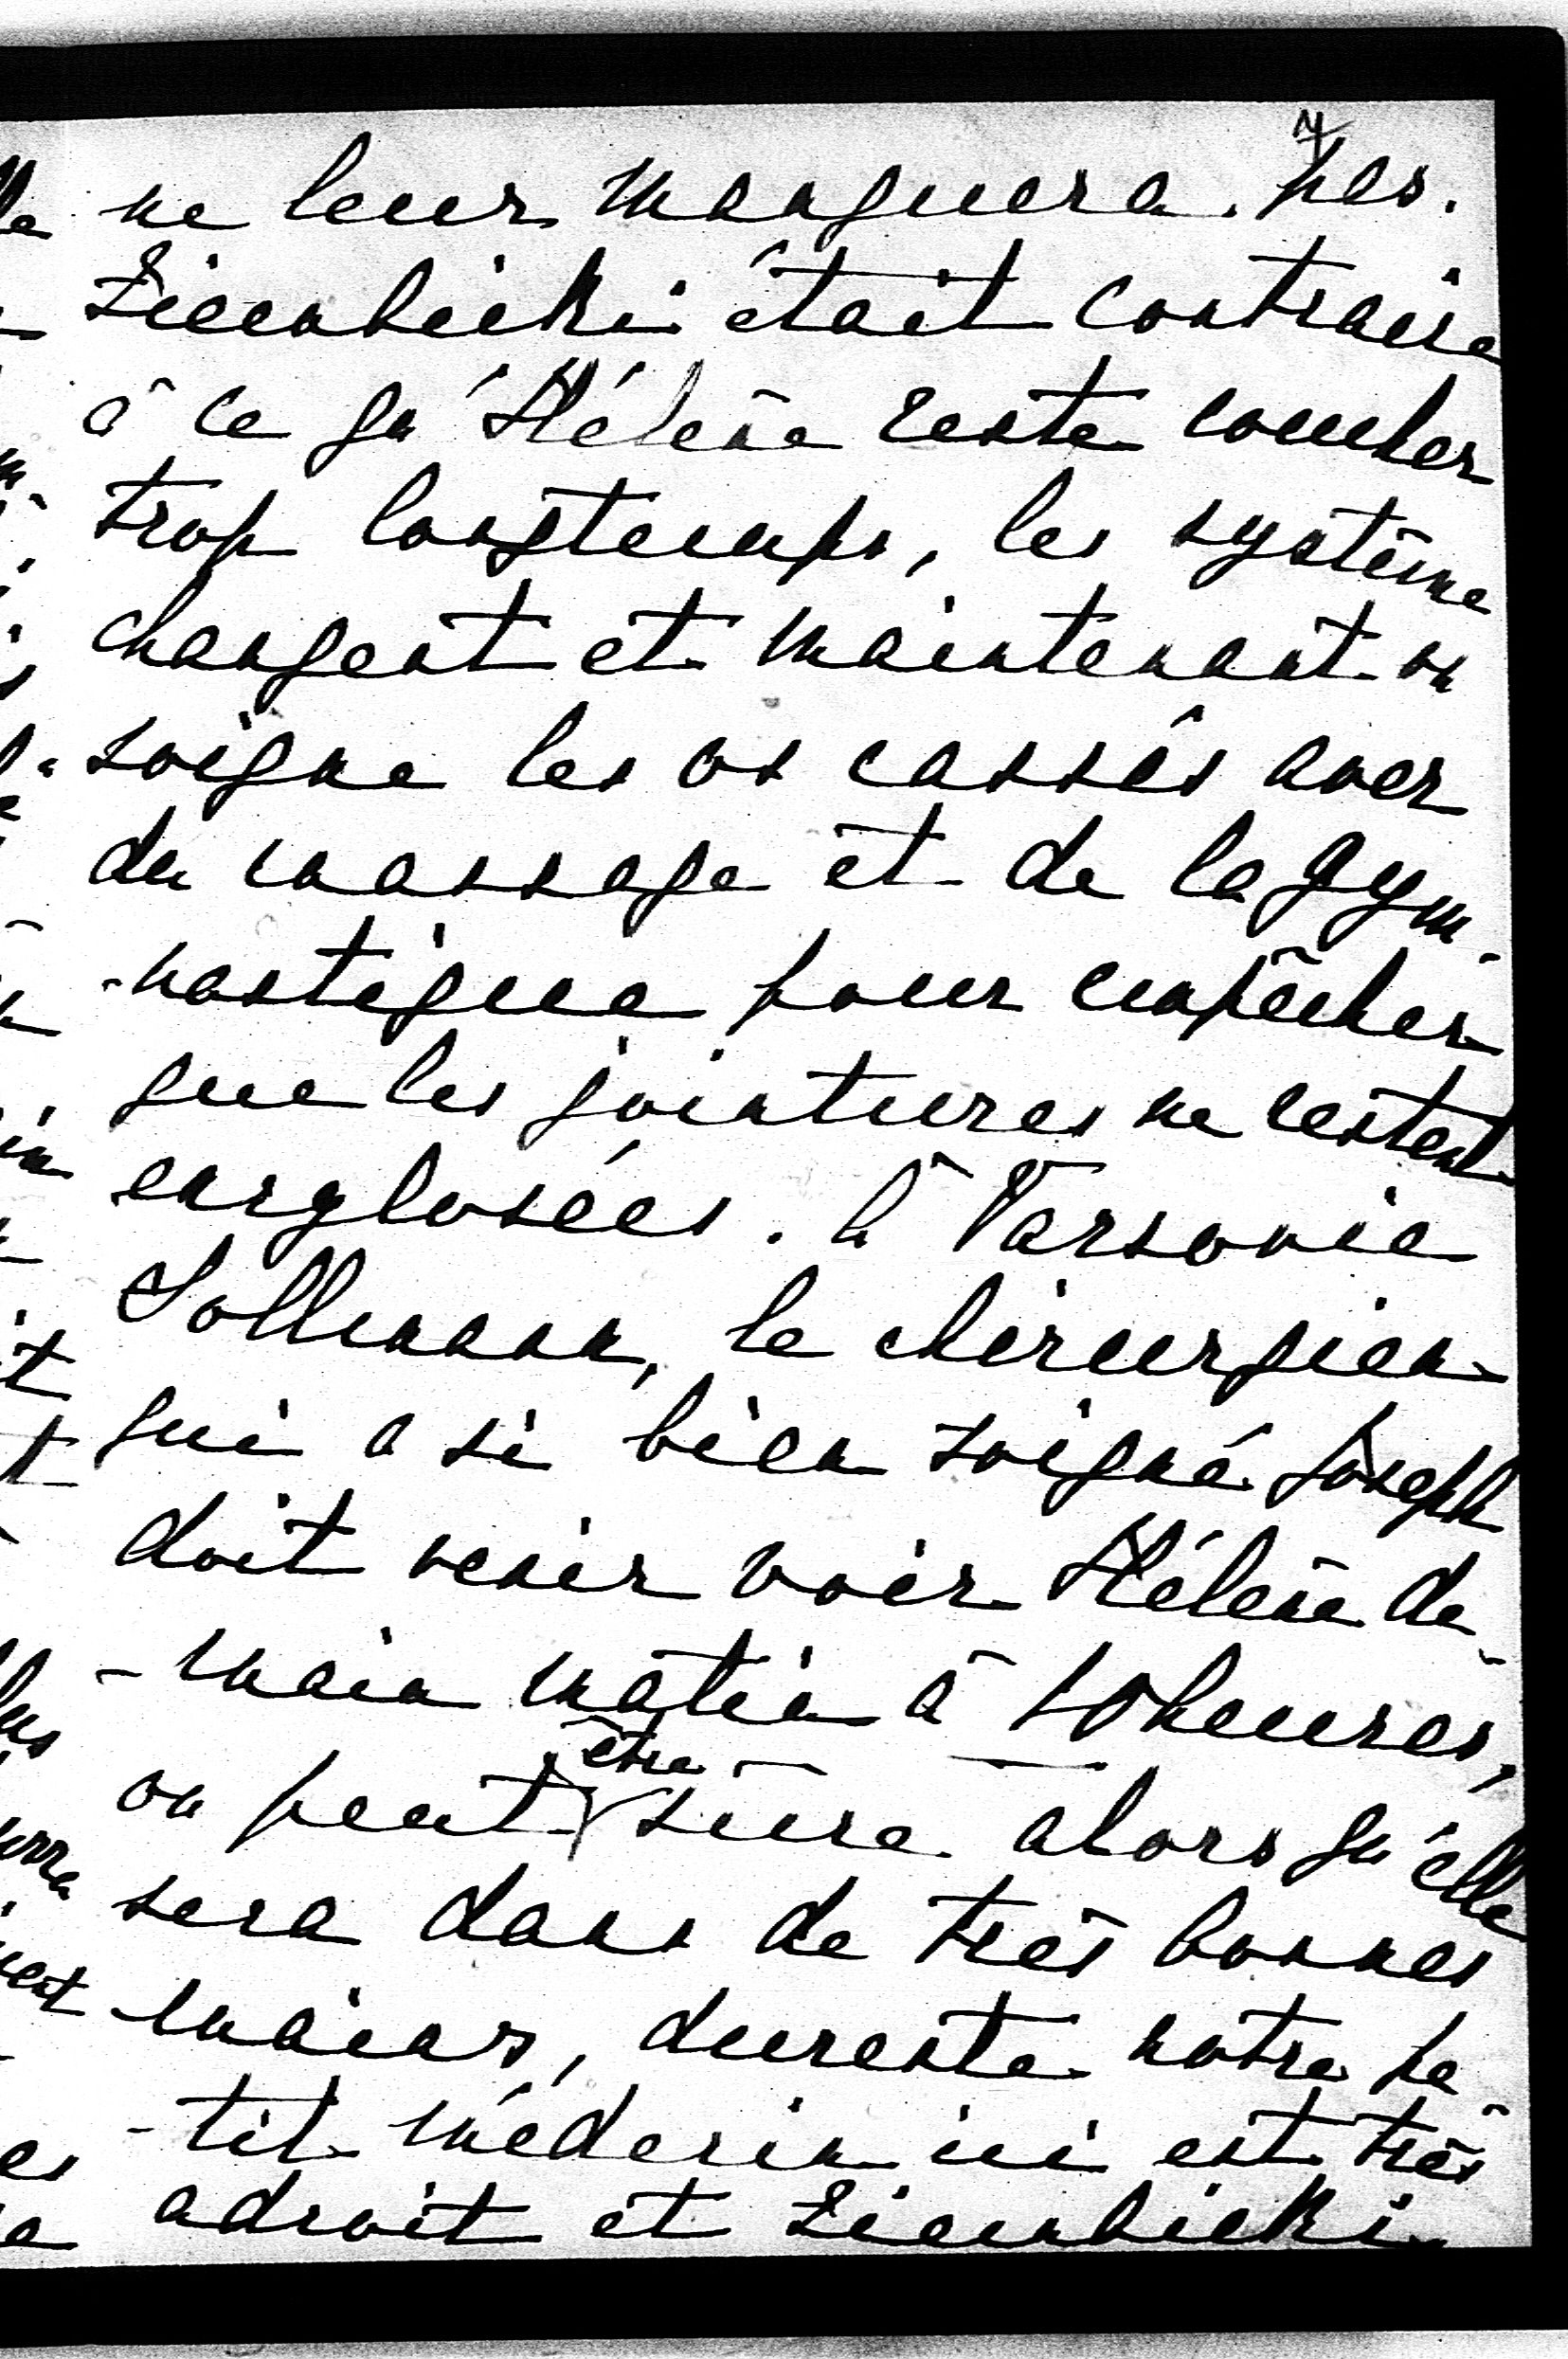 7
ne leur manquera pas.
Ziembicki était contraire
à ce qu'Hélène reste coucher
trop longtemps, les système
changent et maintenant on
soigne les os cassés avec
du massage et de la gym-
-nastique pour empêcher
que les jointures ne restent
englosées. à Varsovie
Sollmann, le chirurgien
qui a si bien soigné Joseph
doit venir voir Hélène de-
-main matin à 10 heures,
on peut être sûre alors qu'elle
sera dans de très bonnes
mains, dureste notre pe
-tit médecin ici est très
adroit et Ziembicki